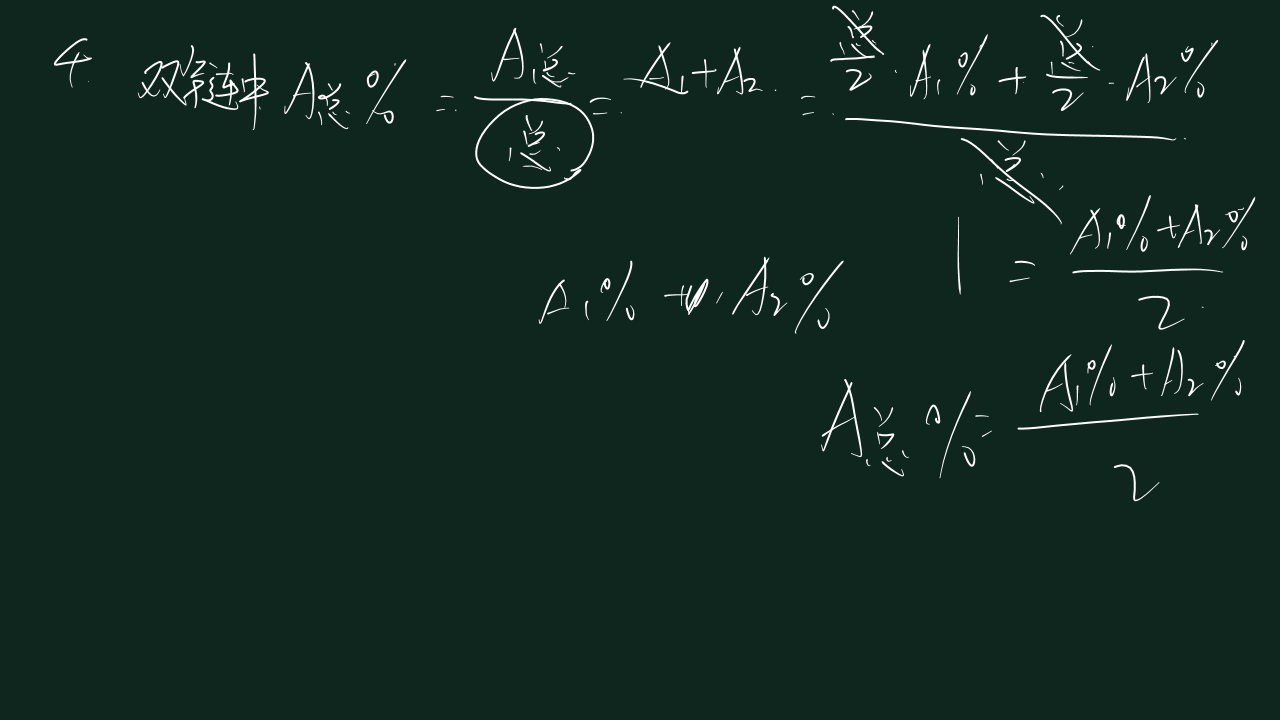 4. 双链中 A总% = A总/总 = A₁+A₂ = (总/2 · A₁% + 总/2 · A₂%)/总
= (A₁%+A₂%)/2
A₁% + A₂%
A总% = (A₁%+A₂%)/2